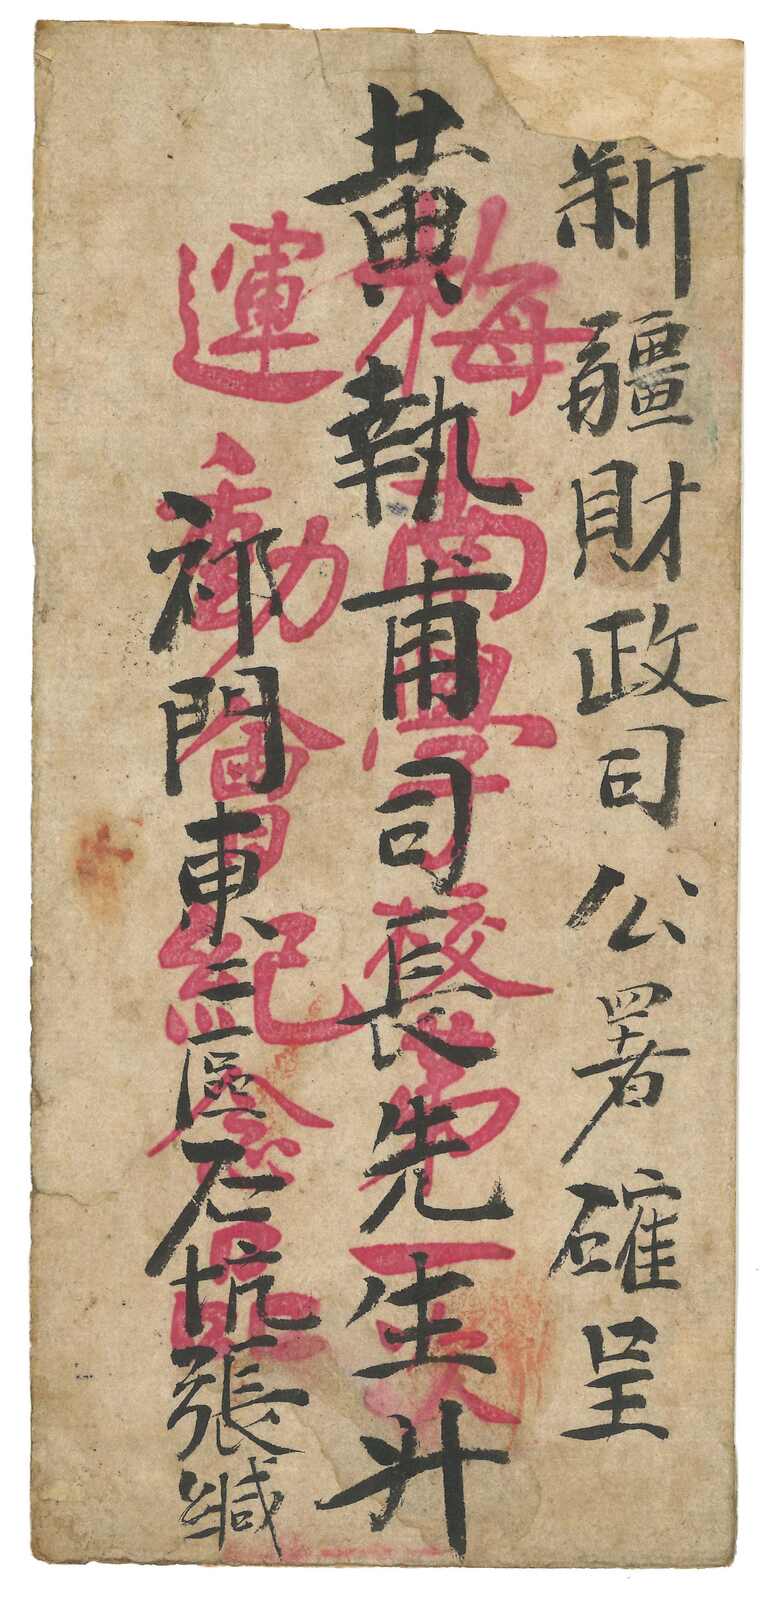 新疆財政司公署確呈
黃執甫司長先生升
祁門東三區石坑張緘
梅南學校第一次
運動會紀念品